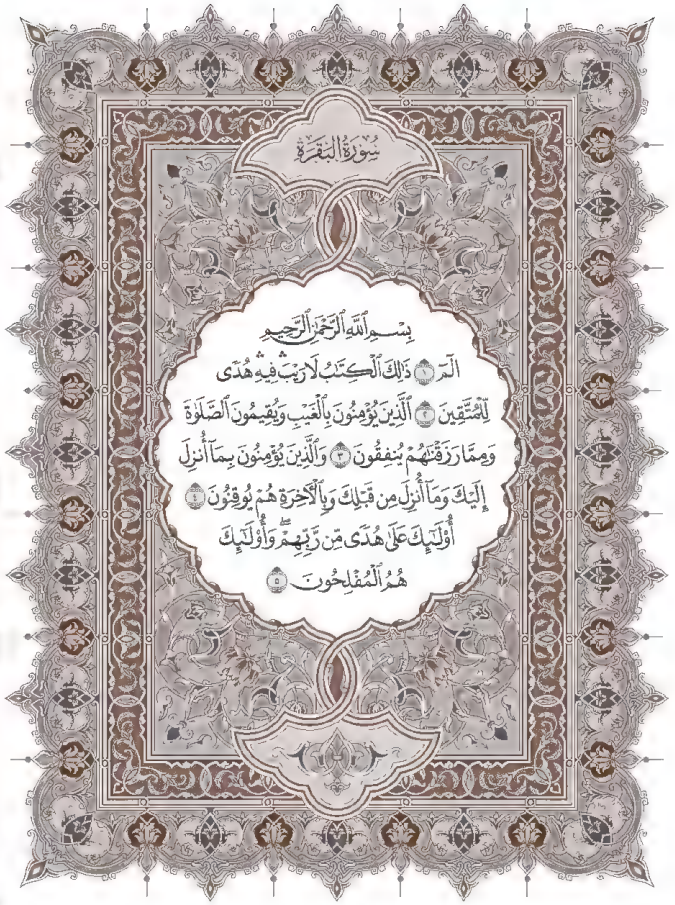 سُورَةُ البَقَرَةِ
بِسْمِ ٱللَّهِ ٱلرَّحْمَٰنِ ٱلرَّحِيمِ
الٓمٓ ١ ذَٰلِكَ ٱلْكِتَٰبُ لَا رَيْبَ ۛ فِيهِ ۛ هُدًى
لِّلْمُتَّقِينَ ٢ ٱلَّذِينَ يُؤْمِنُونَ بِٱلْغَيْبِ وَيُقِيمُونَ ٱلصَّلَوٰةَ
وَمِمَّا رَزَقْنَٰهُمْ يُنفِقُونَ ٣ وَٱلَّذِينَ يُؤْمِنُونَ بِمَآ أُنزِلَ
إِلَيْكَ وَمَآ أُنزِلَ مِن قَبْلِكَ وَبِٱلْـَٔاخِرَةِ هُمْ يُوقِنُونَ ٤
أُو۟لَٰٓئِكَ عَلَىٰ هُدًى مِّن رَّبِّهِمْ ۖ وَأُو۟لَٰٓئِكَ
هُمُ ٱلْمُفْلِحُونَ ٥